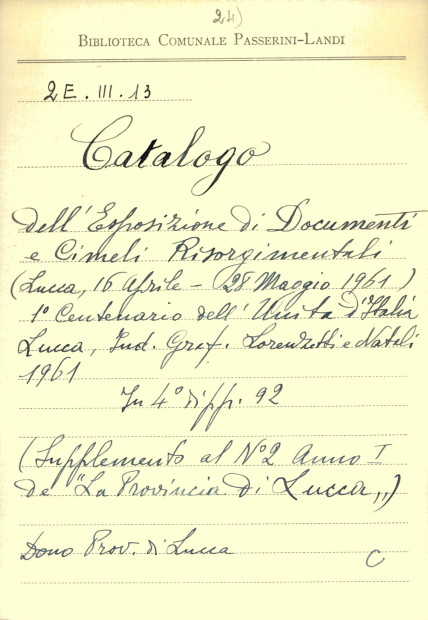 24)
BIBLIOTECA COMUNALE PASSERINI-LANDI
2E. III. 13
Catalogo
dell'Esposizione di Documenti
e Cimeli Risorgimentali
(Lucca, 16 Aprile - 28 Maggio 1961)
1° Centenario dell'Unità d'Italia
Lucca, Ind. Graf. Lorenzetti e Natali
1961
In 4° di pp. 92
(Supplemento al N°2 Anno I
de "La Provincia di Lucca,,)
Dono Prov. di Lucca
C